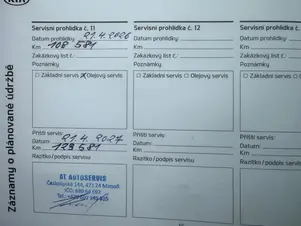 Záznamy o plánované údržbě
Servisní prohlídka č. 11
Datum prohlídky: 21.4.2026
Km 108 581
Zakázkový list č.:
Poznámky
Základní servis Olejový servis
Příští servis
Datum: 21.4.2027
Km 123 581
Razítko/podpis servisu
AT AutoSERVIS
Českolipská 144, 471 24 Mimoň
Servisní prohlídka č. 12
Datum prohlídky:
Km
Zakázkový list č.:
Poznámky
Základní servis Olejový servis
Příští servis
Datum:
Km
Razítko/podpis servisu
Servisní prohlí
Datum prohlídky
Km
Zakázkový list č.
Poznámky
Základní ser
Příští servis
Datum:
Km
Razítko/podpis